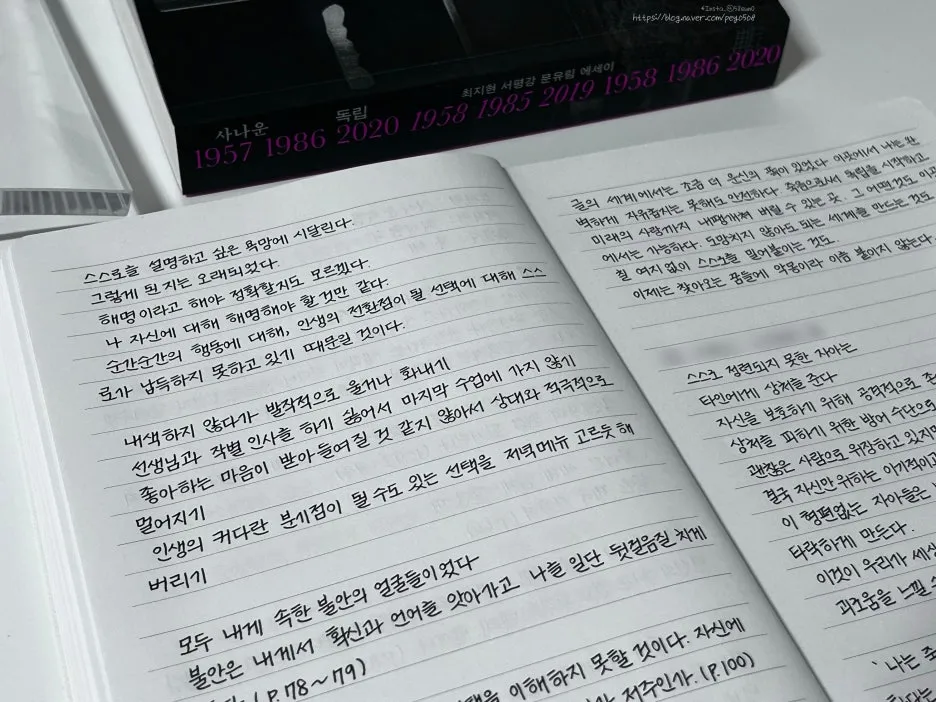 https://blog.naver.com/peyo508
최지현 서평강 문유림 에세이
사나운 독립
1957 1986 2020 1958 1985 2019 1958 1986 2020
스스로를 설명하고 싶은 욕망에 시달린다.
그렇게 된 지는 오래되었다.
해명이라고 해야 정확할지도 모르겠다.
나 자신에 대해 해명해야 할 것만 같다.
순간순간의 행동에 대해, 인생의 전환점이 될 선택에 대해 스스
로가 납득하지 못하고 있기 때문일 것이다.
내색하지 않다가 발작적으로 울거나 화내기
선생님과 작별 인사를 하기 싫어서 마지막 수업에 가지 않기
좋아하는 마음이 받아들여질 것 같지 않아서 상대와 적극적으로
멀어지기
인생의 커다란 분기점이 될 수도 있는 선택을 저녁메뉴 고르듯 해
버리기
모두 내게 속한 불안의 얼굴들이었다
불안은 내게서 확신과 언어를 앗아가고 나를 일단 뒷걸음질 치게
(p.78~79)
이해하지 못할 것이다. 자신에
저주인가. (p.100)
글의 세계에서는 조금 더 운신의 폭이 있었다 이곳에서 나는 완
벽하게 자유롭지는 못해도 안전하다. 죽음으로서 독립을 시작하고
미래의 사랑까지 내팽개쳐 버릴 수 있는 곳. 그 어떤 것도 이곳
에서는 가능하다. 도망치지 않아도 되는 세계를 만드는 것도.
칠 여지 없이 스스로를 밀어붙이는 것도.
이제는 찾아오는 꿈들에 악몽이라 이름 붙이지 않는다.
스스로 정련되지 못한 자아는
타인에게 상처를 준다
자신을 보호하기 위해 공격적으로
상처를 피하기 위한 방어 수단으로
괜찮은 사람으로 위장하고 있지만
결국 자신만 위하는 이기적이고
이 형편없는 자아들은
타락하게 만든다.
이것이 우리가 세상
괴로움을 느낄 수
나는